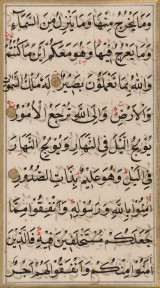 وَمَا يَخْرُجُ مِنْهَا وَمَا يَنْزِلُ مِنَ السَّمَاءِ
وَمَا يَعْرُجُ فِيهَا وَهُوَ مَعَكُمْ أَيْنَ مَا كُنْتُمْ
وَاللَّهُ بِمَا تَعْمَلُونَ بَصِيرٌ لَهُ مُلْكُ السَّمٰوَاتِ
وَالْأَرْضِ وَإِلَى اللَّهِ تُرْجَعُ الْأُمُورُ
يُولِجُ اللَّيْلَ فِي النَّهَارِ وَيُولِجُ النَّهَارَ
فِي اللَّيْلِ وَهُوَ عَلِيمٌ بِذَاتِ الصُّدُورِ
آمِنُوا بِاللَّهِ وَرَسُولِهِ وَأَنْفِقُوا مِمَّا
جَعَلَكُمْ مُسْتَخْلَفِينَ فِيهِ فَالَّذِينَ
آمَنُوا مِنْكُمْ وَأَنْفَقُوا لَهُمْ أَجْرٌ